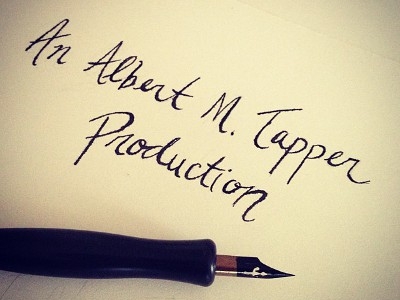 An Albert M. Tapper
Production